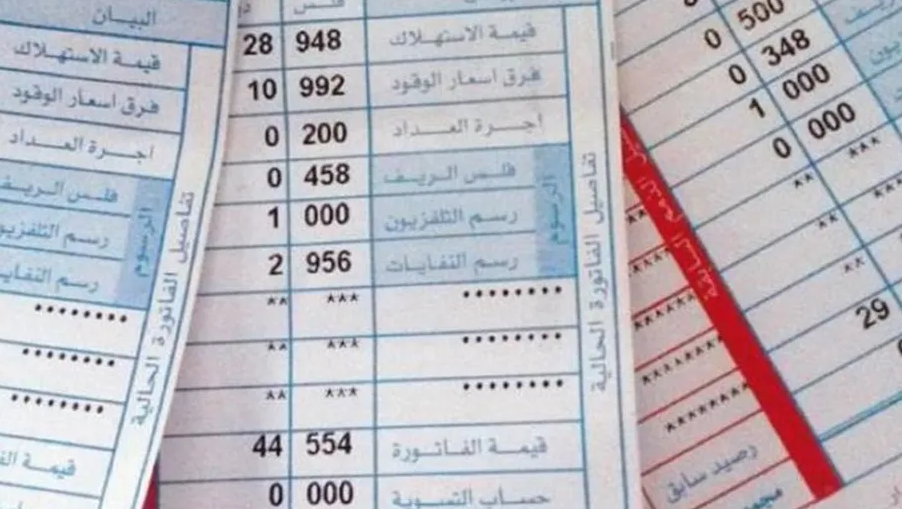 البيان
قيمة الاستهلاك
فرق اسعار الوقود
اجرة العداد
فلس الريف
رسم التلفزيون
رسم النفايات
الرسوم
********
********
********
تفاصيل الفاتورة الحالية
فلس
قيمة الاستهلاك 948 28
فرق اسعار الوقود 992 10
اجرة العداد 200 0
فلس الريف 458 0
رسم التلفزيون 000 1
رسم النفايات 956 2
الرسوم
******** *** **
******** *** **
******** *** **
قيمة الفاتورة 554 44
حساب التسوية 000 0
تفاصيل الفاتورة الحالية
500 0
348 0
000 1
000 0
*** **
**
**
29
رصيد سابق